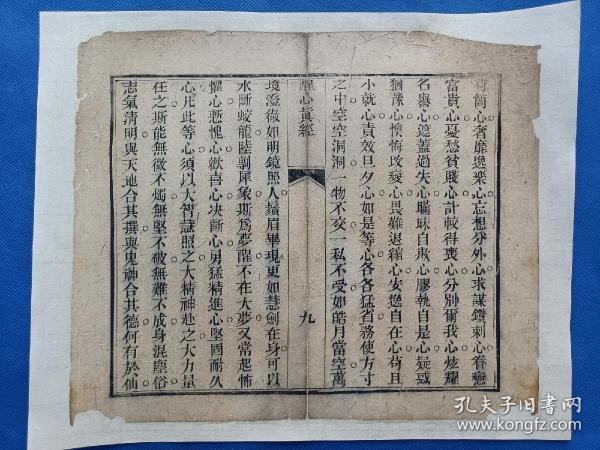 苟簡心奢靡逸樂心忘想分外心求謀鑽刺心眷戀
富貴心憂愁貧賤心計較得喪心分別爾我心炫耀
名譽心遮蓋過失心瞞昧自欺心膠執自是心疑惑
猶豫心懊悔攺變心畏難退縮心安逸自在心苟且
小就心責效旦夕心如是等心各各猛省務使方寸
之中空空洞洞一物不交一私不受如皓月當空萬
心眞經
九
境澄徹如明鏡照人鬚眉畢現更如慧劍在身可以
水斷蛟龍陸剸犀象斯爲夢醒不在大夢又當起怖
懼心慙愧心歡喜心决斷心勇猛精進心堅固耐久
心凡此等心須以大智識照之大精神赴之大力量
任之斯能無微不燭無堅不破無難不成身混塵俗
志氣清明與天地合其撰與鬼神合其德何有於仙
孔夫子旧书网
www.kongfz.com